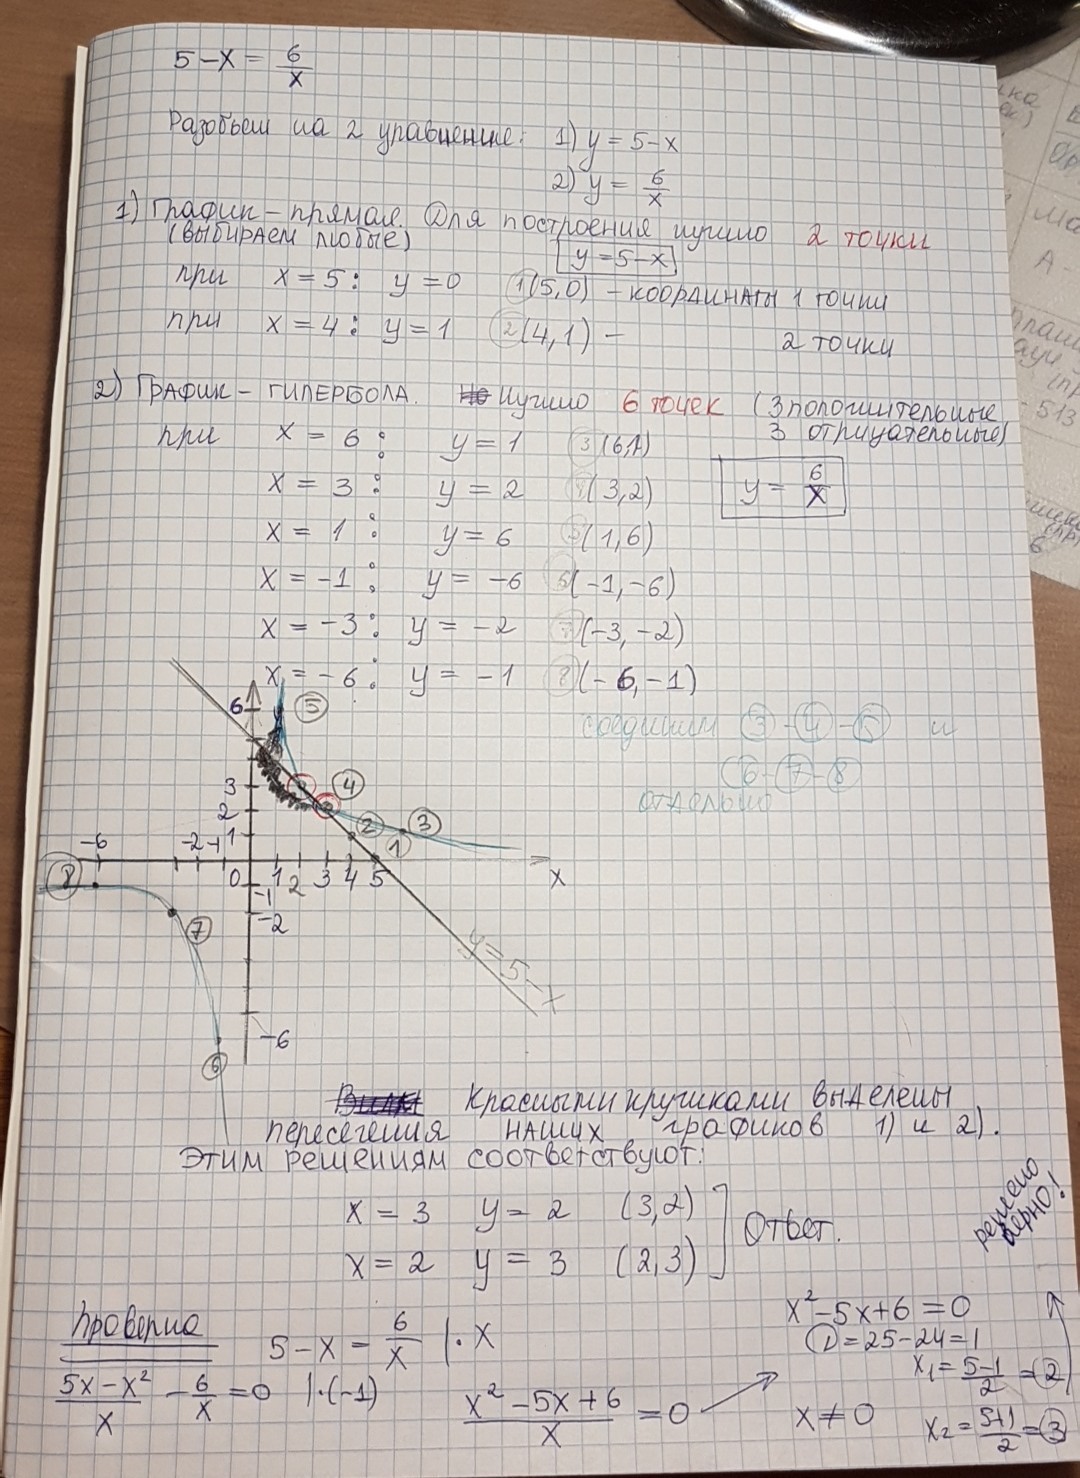 5-x = 6/x
Разобьем на 2 уравнение: 1) y = 5-x
2) y = 6/x
1) График - прямая. Для построения нужно 2 точки
(выбираем любые)
y = 5-x
при x = 5: y = 0 1 (5,0) - координаты 1 точки
при x = 4: y = 1 2 (4,1) - 2 точки
2) График - гипербола. Нужно 6 точек (3 положительные
3 отрицательные)
при x = 6: y = 1 3 (6,1)
x = 3: y = 2 4 (3,2) y = 6/x
x = 1: y = 6 5 (1,6)
x = -1: y = -6 6 (-1,-6)
x = -3: y = -2 7 (-3,-2)
x = -6: y = -1 8 (-6,-1)
соединим 3-4-5 и
6-7-8
отдельно
6 5
3 4
2 2 3
1 1
-6 -2 -1
0 1 2 3 4 5 x
8 -1
-2
7
y = 5-x
-6
6
Красными кружками выделены
пересечения наших графиков 1) и 2).
Этим решениям соответствуют:
x = 3 y = 2 (3,2)
x = 2 y = 3 (2,3)
Ответ.
решено
верно!
Проверка 5-x = 6/x |·x
(5x-x²)/x - 6/x = 0 |·(-1)
(x²-5x+6)/x = 0
x²-5x+6 = 0
D = 25-24 = 1
x₁ = (5-1)/2 = 2
x ≠ 0
x₂ = (5+1)/2 = 3